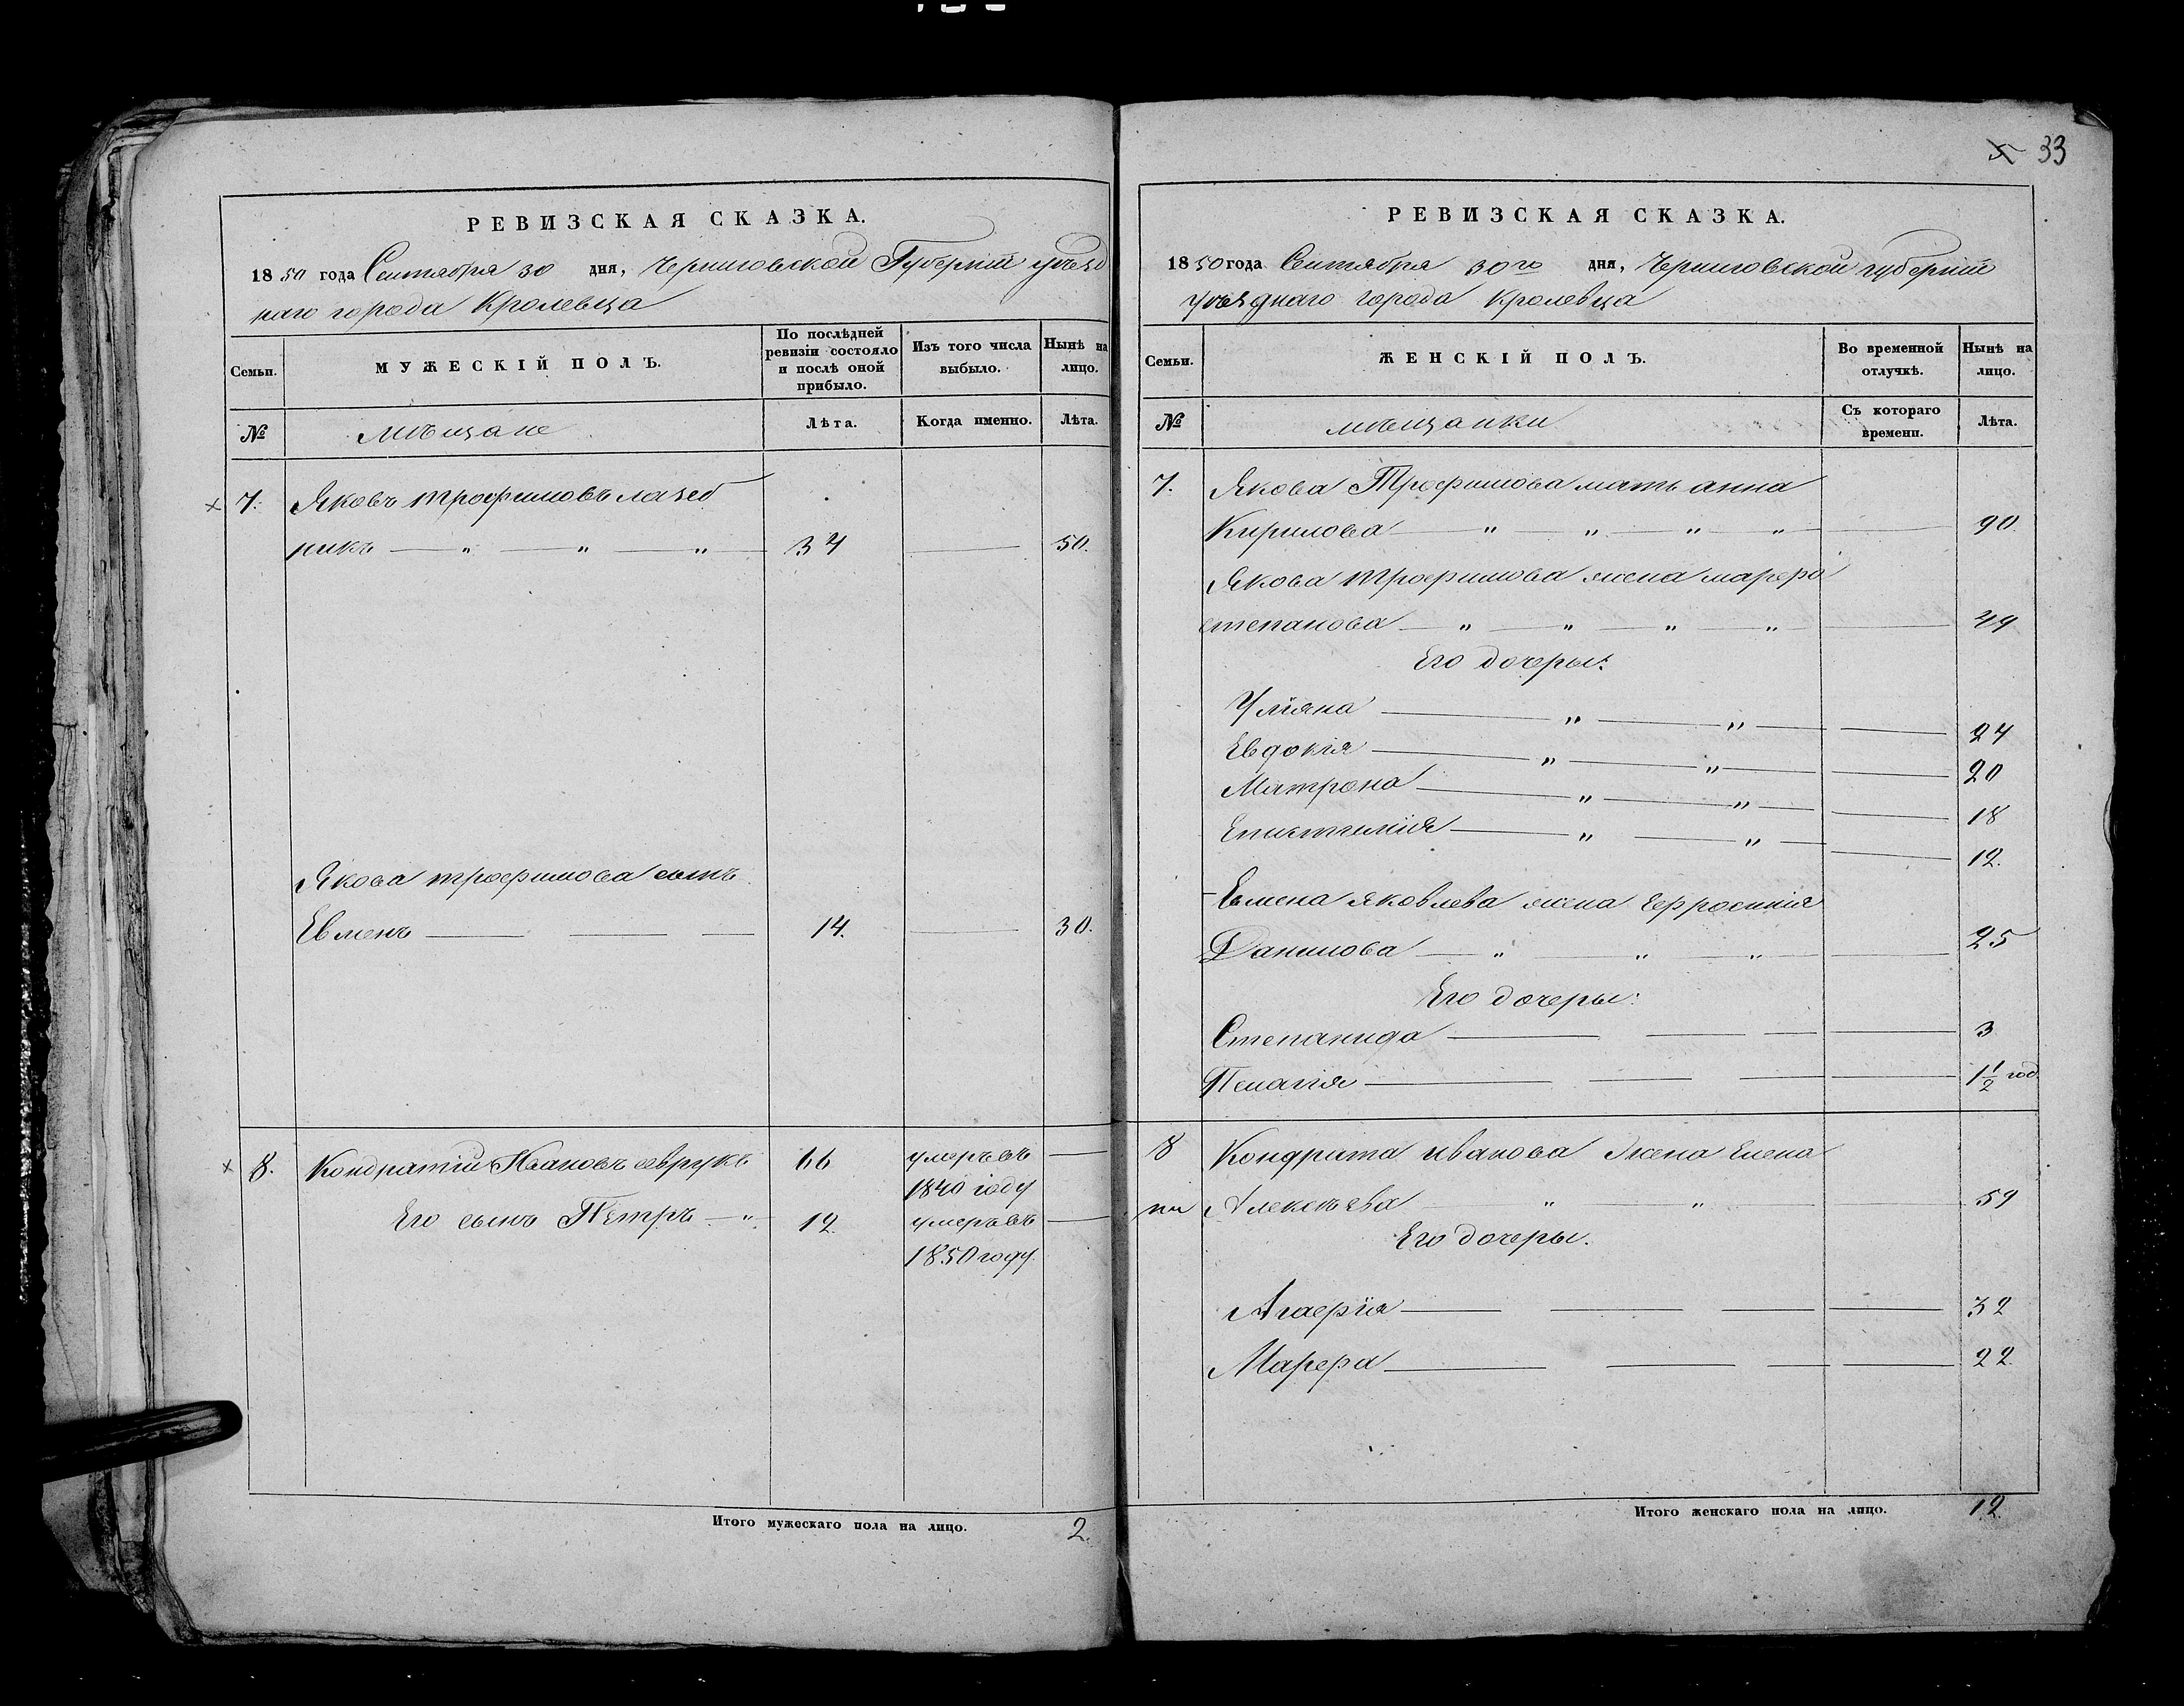 РЕВИЗСКАЯ СКАЗКА.
1850 года Сентября 30 дня, Черниговской Губерніи уѣзд
наго города Кролевца
Семьи.
МУЖЕСКІЙ ПОЛЪ.
По послѣдней ревизіи состояло и послѣ оной прибыло.
Изъ того числа выбыло.
Нынѣ на лицо.
№
мѣщане
Лѣта.
Когда именно.
Лѣта.
7. Яковъ трофимовъ лазеб
никъ — „ — „ — „ 34 — 50.
Якова трофимова сынъ
Евменъ — — — 14. — 30.
8. Кондратій Ивановъ севрукъ 66 умеръ въ —
1840 году
Его сынъ Петръ — „ 12. умеръ въ —
1850 году.
Итого мужескаго пола на лицо. 2.
33
РЕВИЗСКАЯ СКАЗКА.
1850 года Сентября 30го дня, Черниговской губерніи
уѣзднаго города Кролевца
Семьи.
ЖЕНСКІЙ ПОЛЪ.
Во временной отлучкѣ.
Нынѣ на лицо.
№
мѣщанки
Съ котораго времени.
Лѣта.
7. Якова Трофимова мать анна
Кирилова — „ — „ — „ — „ — 90.
Якова трофимова жена марфа
степанова — „ — „ — „ — „ — 49
Его дочеры:
Уліяна — „ — „ — — 24
Евдокія — „ — „ — — 20
Матрона — „ — „ — — 18
Епистимія — „ — „ — — 12.
Евмена яковлева жена Ефросинія
Данилова — „ — „ — „ — — 25
Его дочеры:
Степанида — — — — 3
Пелагія — — — — 1½ год.
8 Кондрата иванова жена Елена
Алексѣева — „ — „ — — 59
Его дочеры.
Агафія — — — — 32
Марфа — — — — 22.
Итого женскаго пола на лицо. 12.